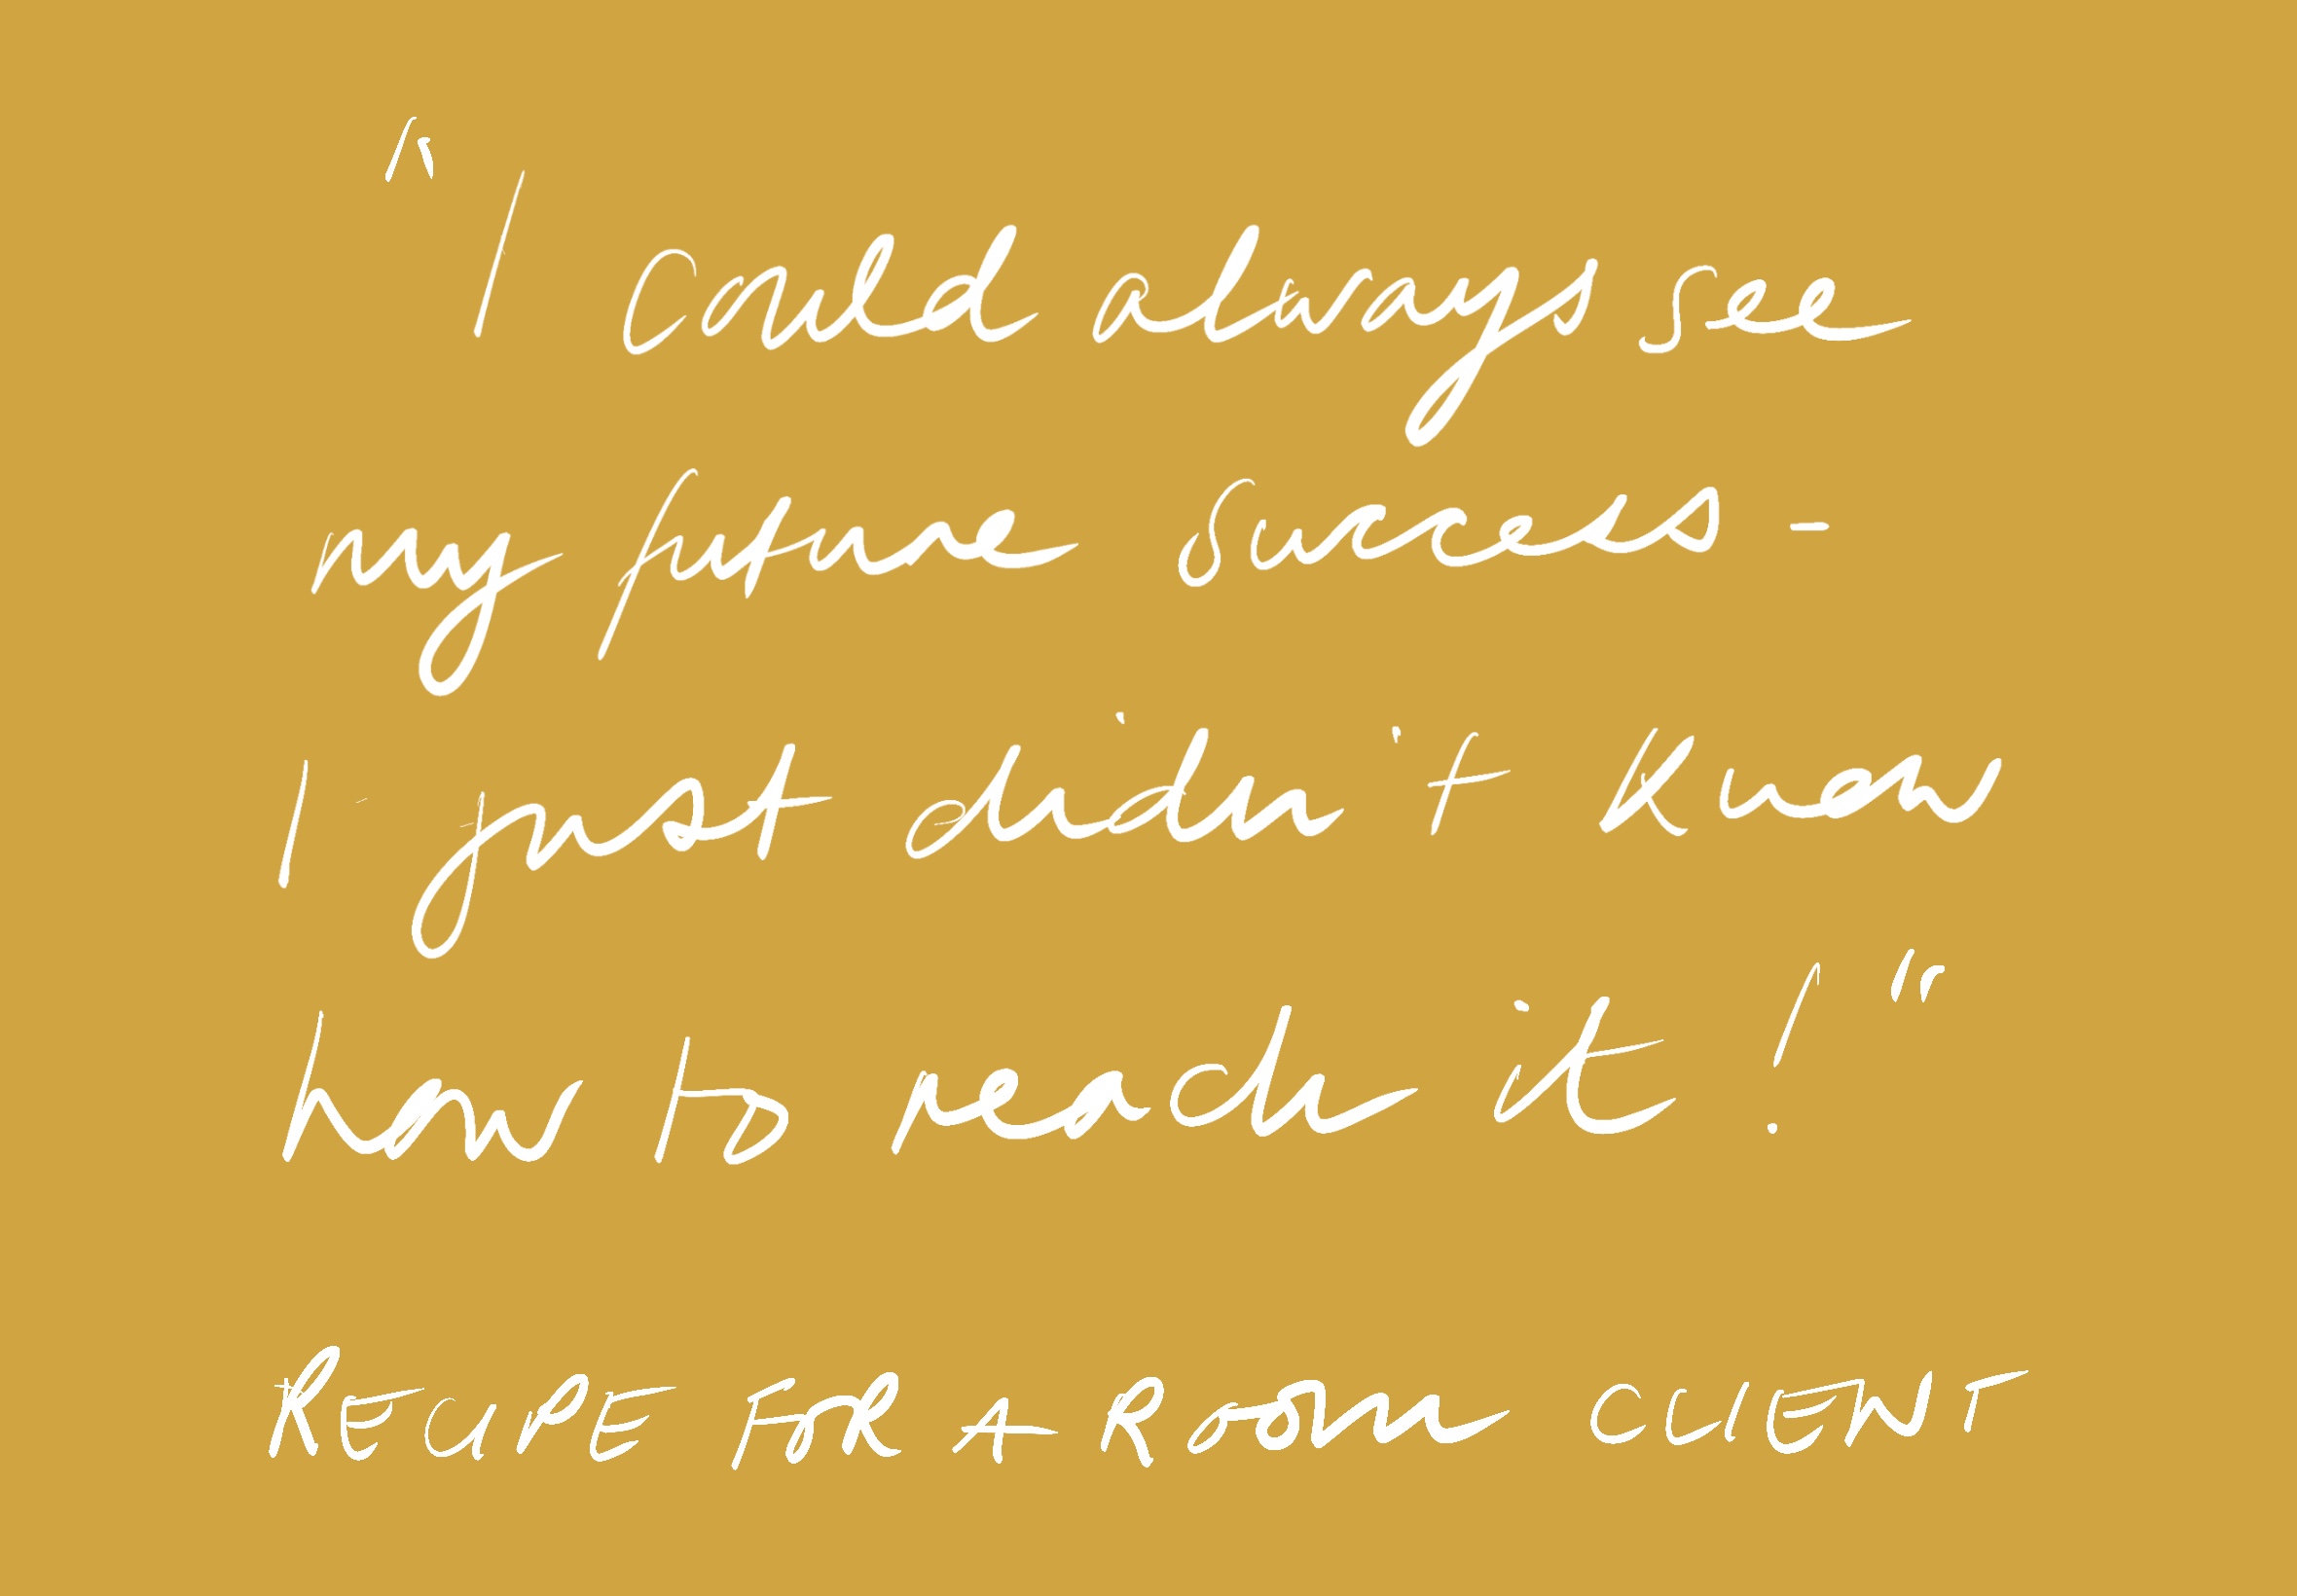 "I could always see
my future success -
I just didn't know
how to reach it!"
RECIPE FOR A ROOM CLIENT